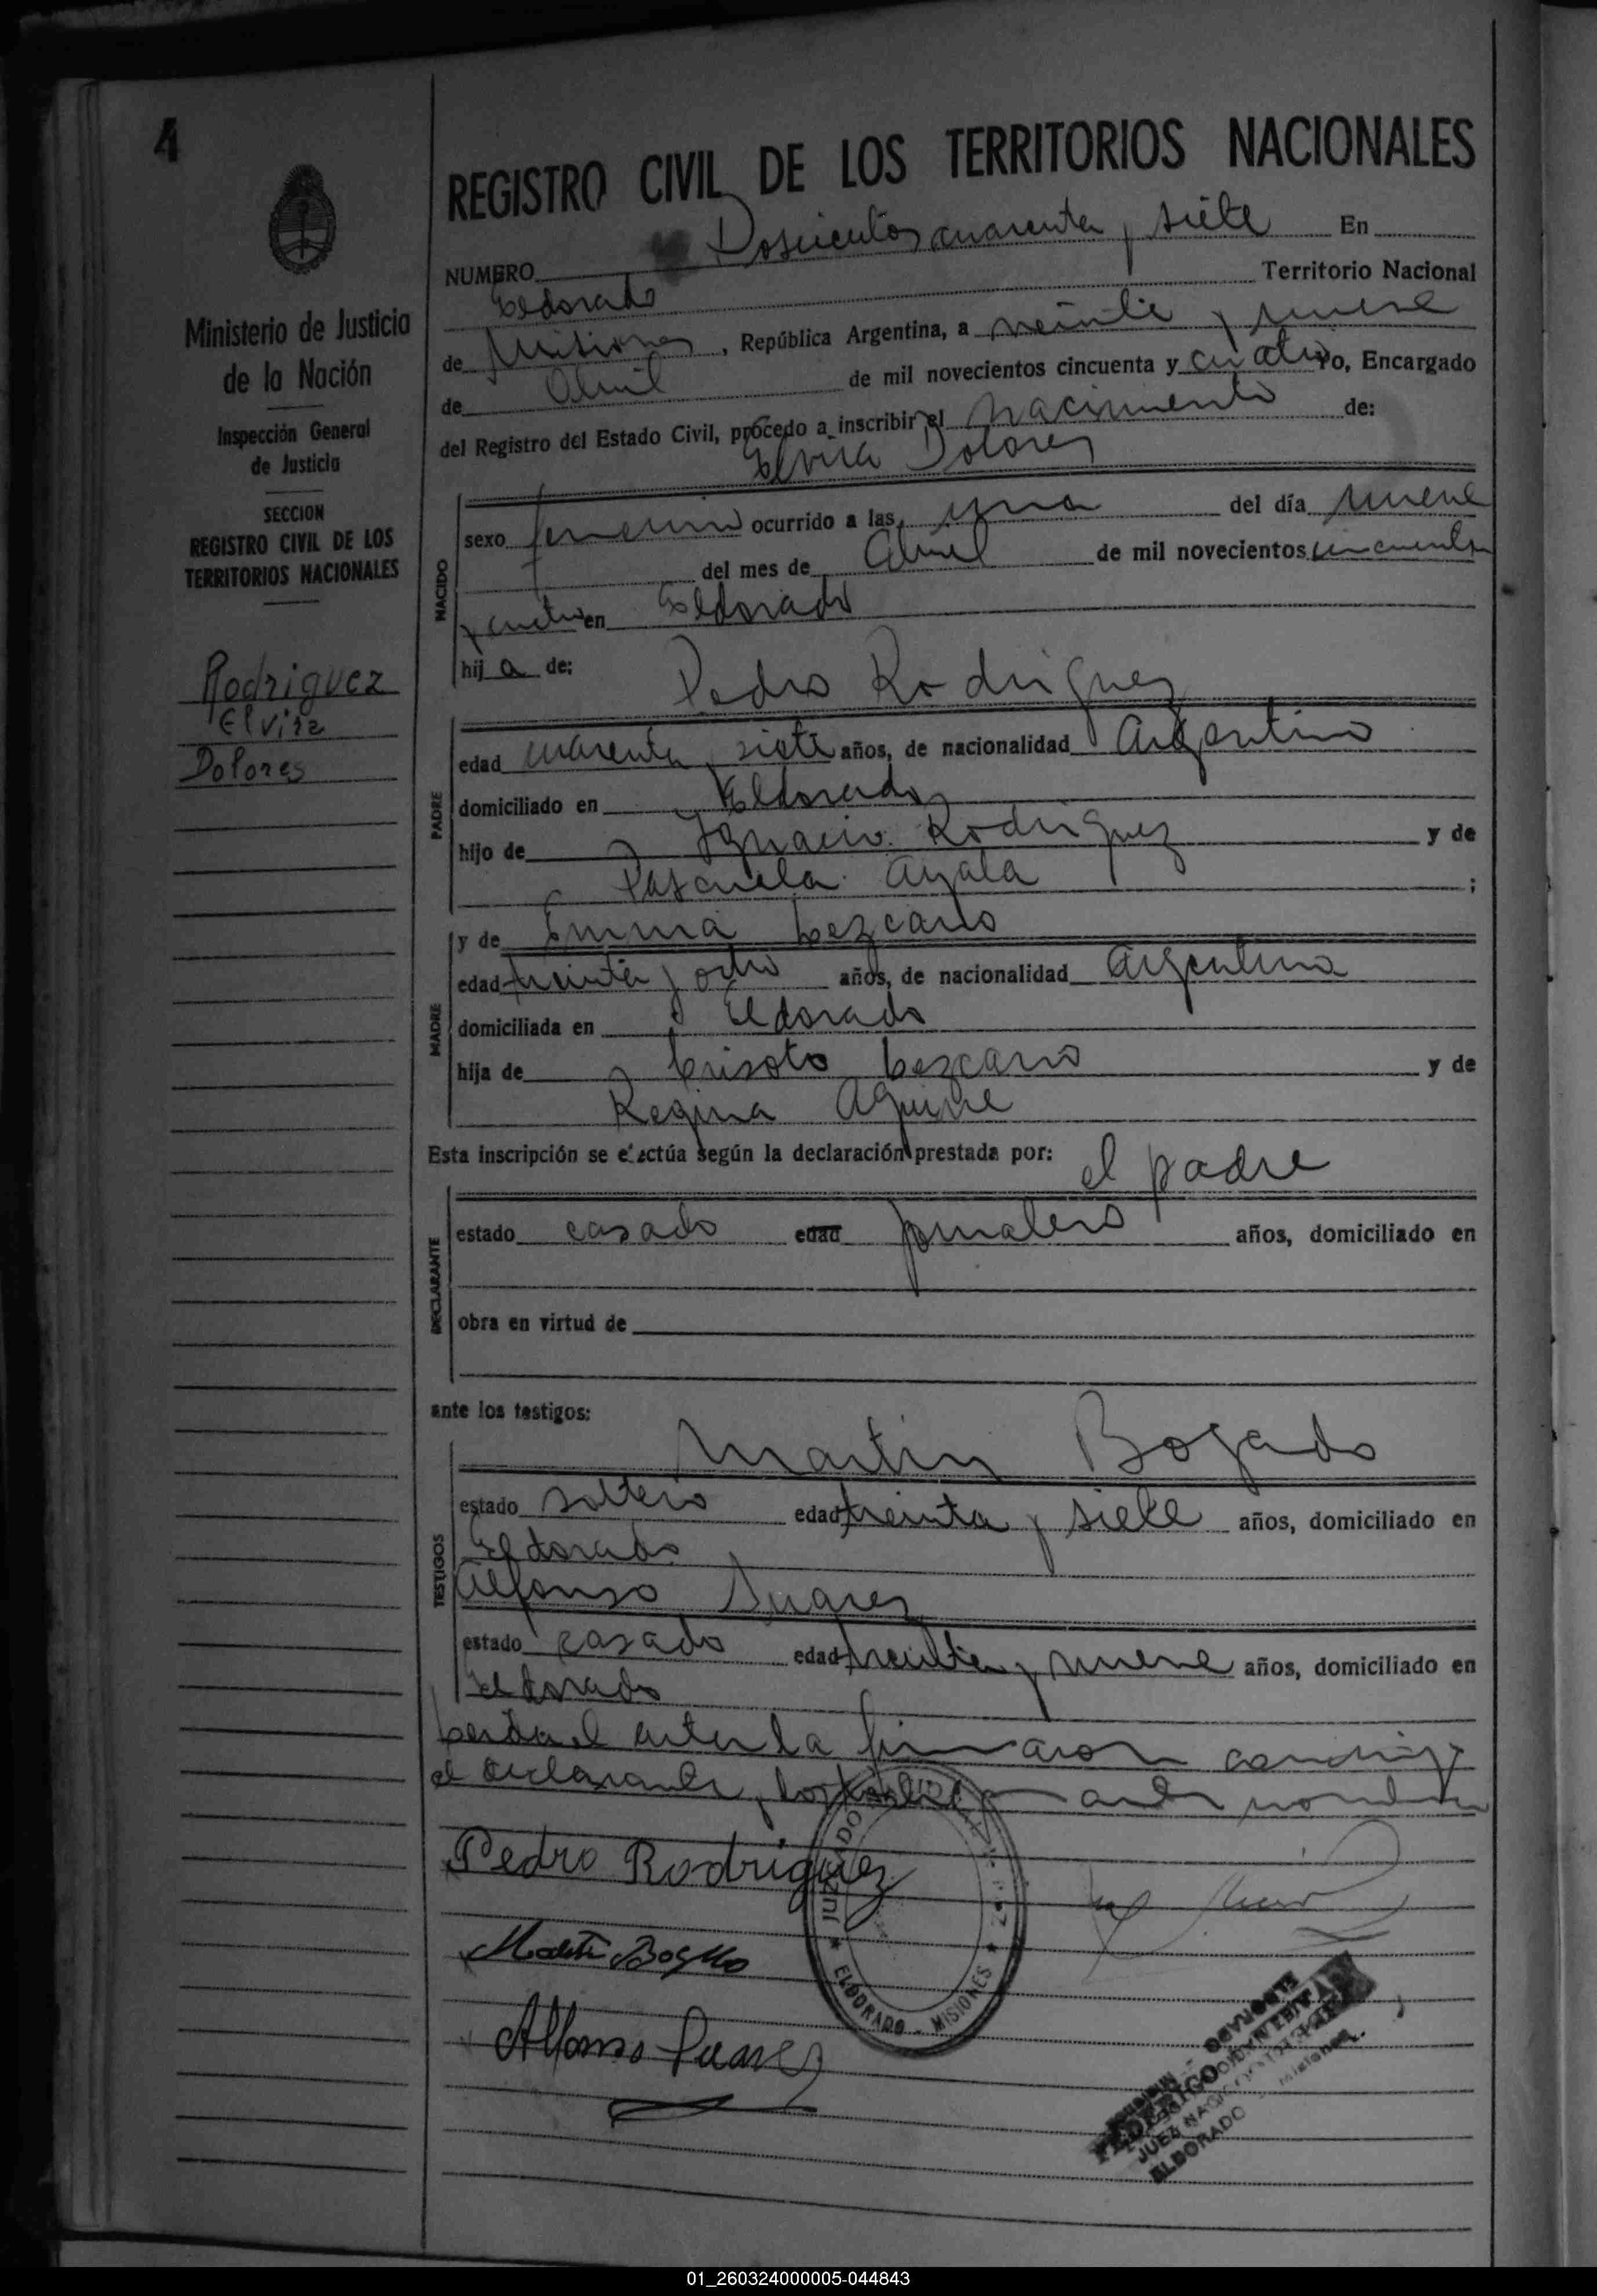 4
REGISTRO CIVIL DE LOS TERRITORIOS NACIONALES
Ministerio de Justicia
de la Nación
Inspección General
de Justicia
SECCION
REGISTRO CIVIL DE LOS
TERRITORIOS NACIONALES
Rodriguez
Elvira
Dolores
NUMERO Doscientos cuarenta y siete En
Eldorado Territorio Nacional
de Misiones, República Argentina, a veinte y nueve
de Abril de mil novecientos cincuenta y cuatro Yo, Encargado
del Registro del Estado Civil, procedo a inscribir el nacimiento de:
Elvira Dolores
NACIDO
sexo femenino ocurrido a las una del día nueve
del mes de Abril de mil novecientos cincuenta
y cuatro en Eldorado
hij a de: Pedro Rodriguez
PADRE
edad cuarenta y siete años, de nacionalidad Argentino
domiciliado en Eldorado
hijo de Ignacio Rodriguez y de
Pascuela Ayala ;
y de Emma Lezcano
MADRE
edad treinta y ocho años, de nacionalidad Argentina
domiciliada en Eldorado
hija de Crisoto Lezcano y de
Regina Aguirre
Esta inscripción se efectúa según la declaración prestada por: el padre
DECLARANTE
estado casado edad jornalero años, domiciliado en
obra en virtud de
ante los testigos:
Martin Bogado
TESTIGOS
estado soltero edad treinta y siete años, domiciliado en
Eldorado
Alfonso Suarez
estado casado edad treinta y nueve años, domiciliado en
Eldorado
Leida el acta la firmaron conmigo
el declarante y los testigos
Pedro Rodriguez
Martin Bogado
Alfonso Suarez
JUZGADO DE PAZ
★ ELDORADO - MISIONES ★
FEDERICO
JUEZ
ELDORADO Misiones
01_260324000005-044843